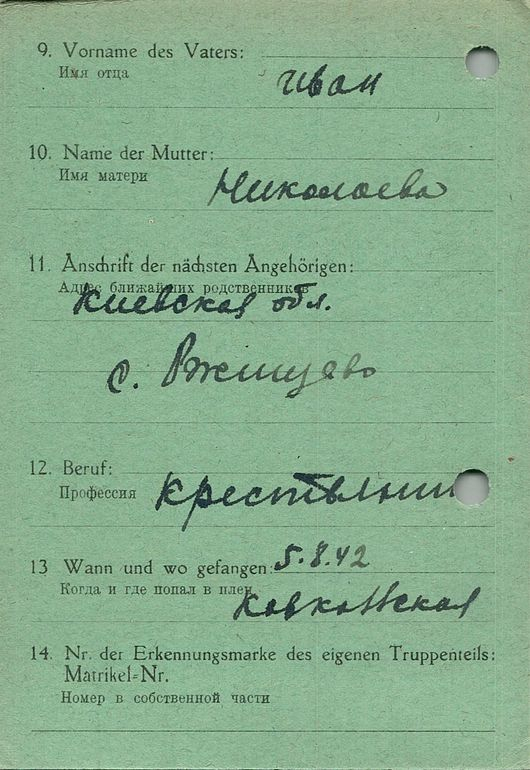 9. Vorname des Vaters:
Имя отца
Иван
10. Name der Mutter:
Имя матери
Николаева
11. Anschrift der nächsten Angehörigen:
Адрес ближайших родственников
Киевская обл.
с. Ржищево
12. Beruf:
Профессия
крестьянин
13 Wann und wo gefangen:
5.8.42
Когда и где попал в плен
Кавказская
14. Nr. der Erkennungsmarke des eigenen Truppenteils:
Matrikel-Nr.
Номер в собственной части